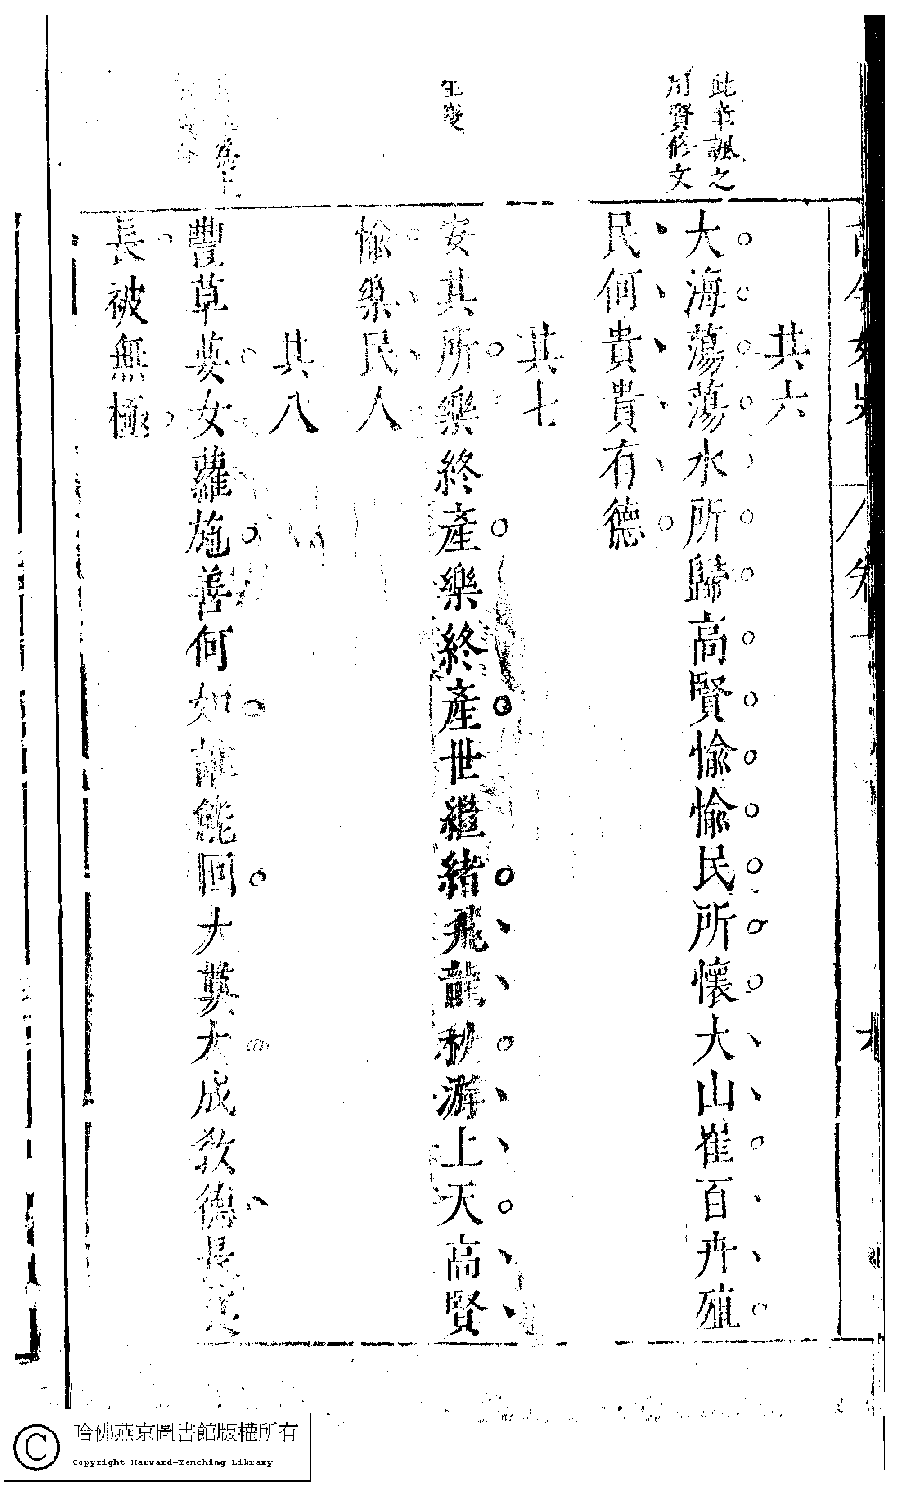 此章諷之
用賢修文
其六
大海蕩蕩水所歸高賢愉愉民所懷大山崔百卉殖
民何貴貴有德
其七
安其所樂終產樂終產世繼緒飛龍秋游上天高賢
愉樂民人
其八
豐草葽女蘿施善何如誰能回大莫大成教德長莫
長被無極
哈佛燕京圖書館版權所有
Copyright Harvard-Yenching Library